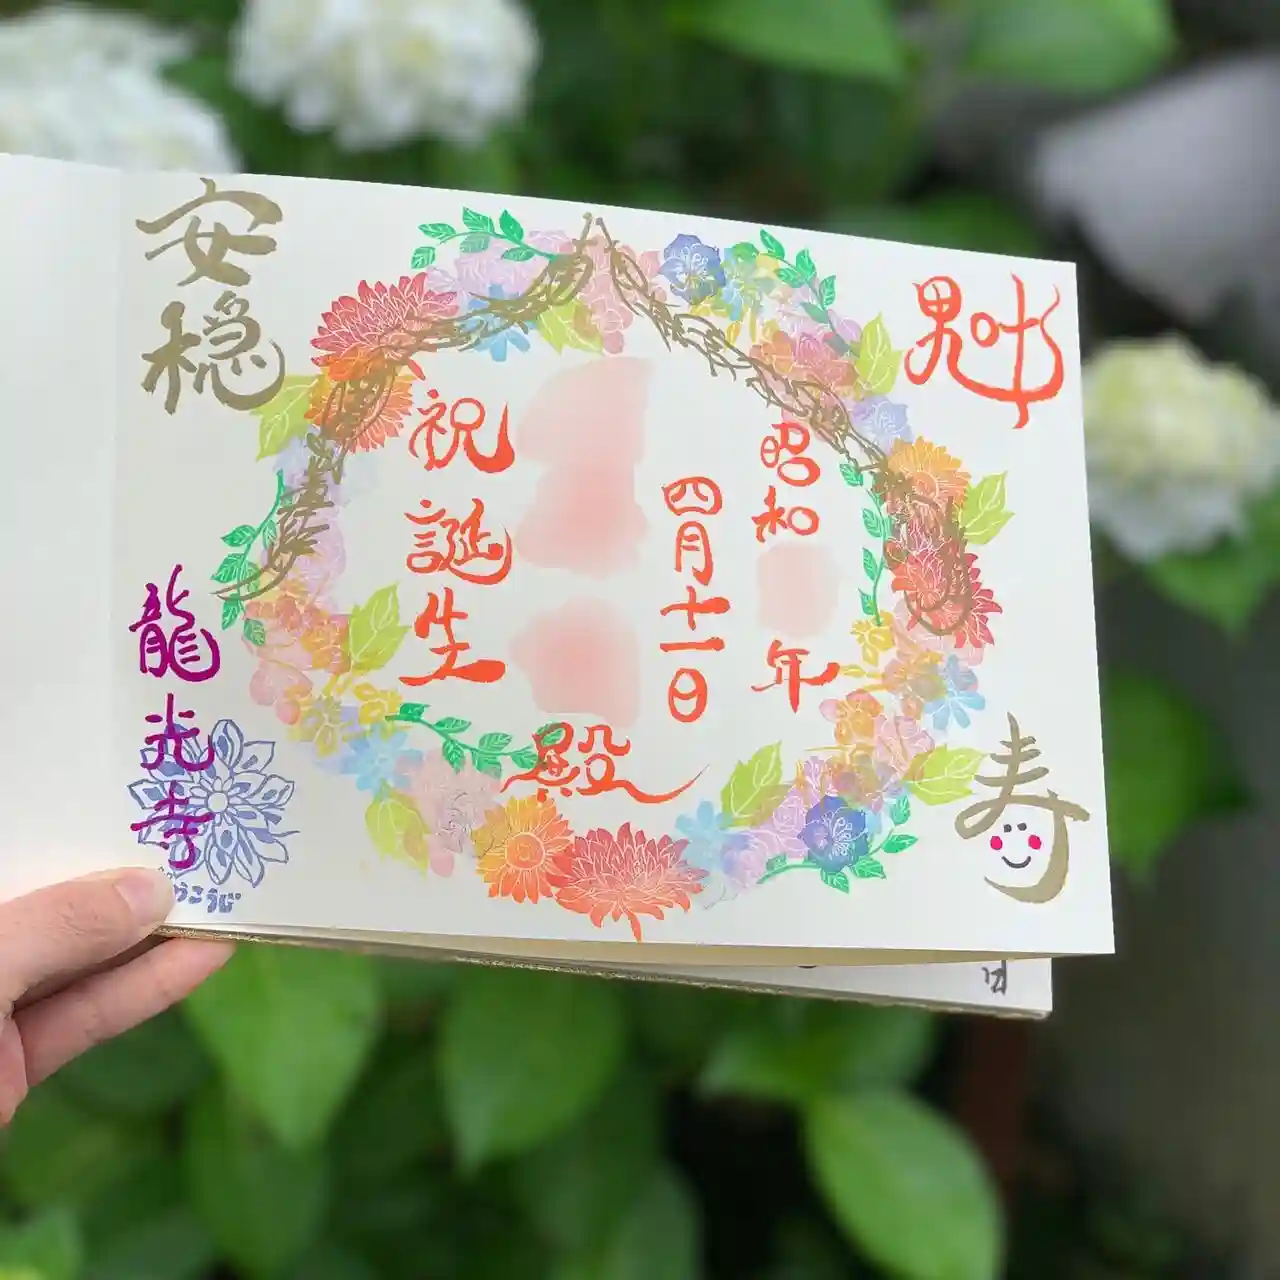 寿
昭和 年
四月十一日
殿
祝誕生
安穏
龍光寺
うこうじ